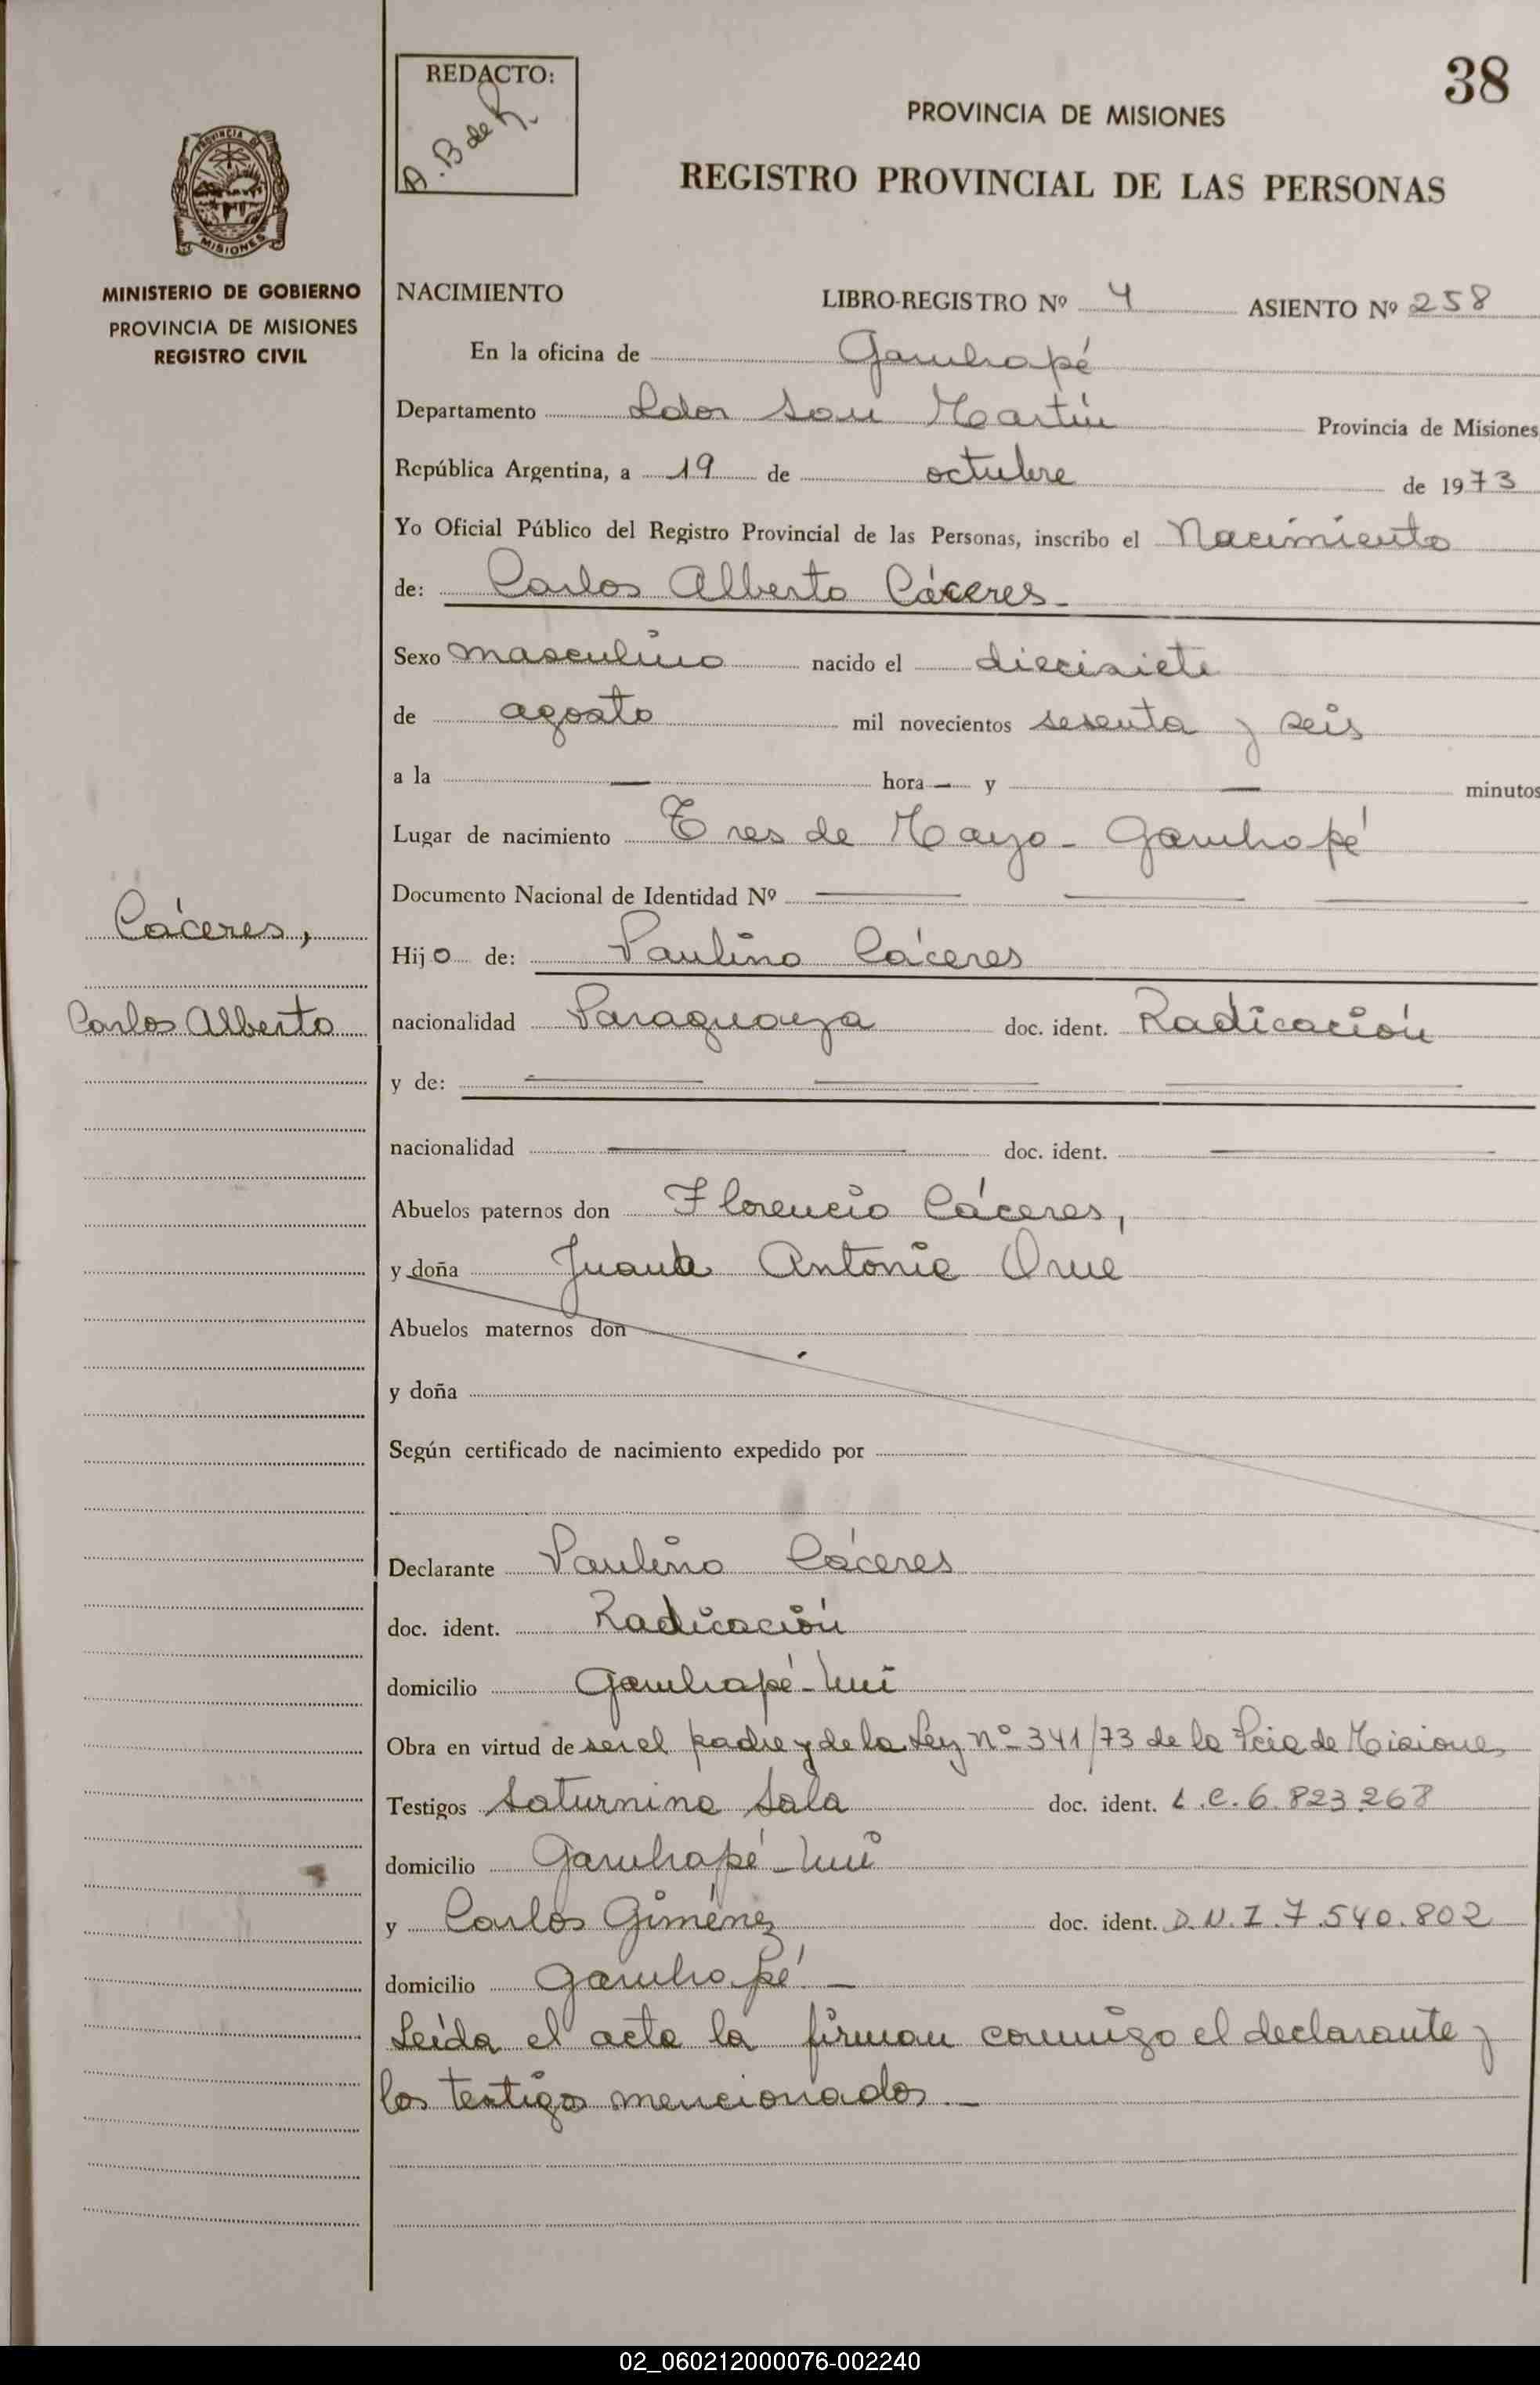 38
REDACTO:
A. B de R.
PROVINCIA DE MISIONES
REGISTRO PROVINCIAL DE LAS PERSONAS
PROVINCIA DE
MISIONES
MINISTERIO DE GOBIERNO
PROVINCIA DE MISIONES
REGISTRO CIVIL
NACIMIENTO LIBRO-REGISTRO Nº 4 ASIENTO Nº 258
En la oficina de Garuhapé
Departamento Ldor San Martín Provincia de Misiones
República Argentina, a 19 de octubre de 1973
Yo Oficial Público del Registro Provincial de las Personas, inscribo el Nacimiento
de: Carlos Alberto Cáceres
Sexo masculino nacido el diecisiete
de agosto mil novecientos sesenta y seis
a la — hora — y — minutos
Lugar de nacimiento Tres de Mayo - Garuhapé
Documento Nacional de Identidad Nº
Cáceres,
Carlos Alberto
Hijo de: Paulino Cáceres
nacionalidad Paraguaya doc. ident. Radicación
y de:
nacionalidad doc. ident.
Abuelos paternos don Florencio Cáceres,
y doña Juana Antonia Orue
Abuelos maternos don
y doña
Según certificado de nacimiento expedido por
Declarante Paulino Cáceres
doc. ident. Radicación
domicilio Garuhapé-Mní
Obra en virtud de ser el padre y de la Ley nº 341/73 de la Pcia de Misiones
Testigos Saturnina Sala doc. ident. L.C. 6.823.268
domicilio Garuhapé-Mní
y Carlos Giménez doc. ident. D.N.I. 7.540.802
domicilio Garuhapé —
Leída el acta la firman conmigo el declarante y
los testigos mencionados. —
02_060212000076-002240